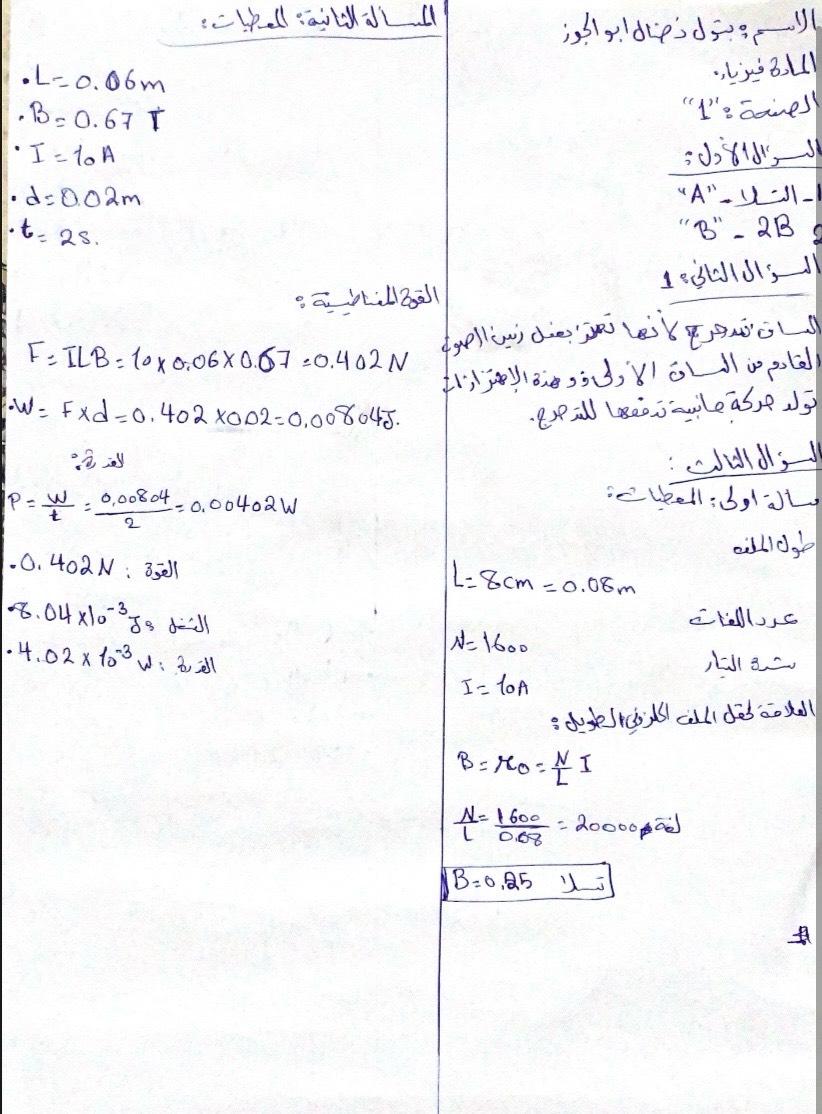 الاسم: بتول نضال ابو الجوز
المادة فيزياء.
الصفحة: "1"
السؤال الأول:
1- التسلا - "A"
2 2B - "B"
السؤال الثاني: 1
الساق تتدحرج لأنها تهتز بفعل رنين الصوت
القادم من الساق الأولى، وهذه الإهتزازات
تولد حركة جانبية تدفعها للتدحرج.
السؤال الثالث:
مسالة اولى: المعطيات:
طول الملف
L = 8cm = 0.08m
عدد اللفات
N = 1600
شدة التيار
I = 10A
العلاقة لحقل الملف الحلزوني الطويل:
B = μ0 = N/L I
N/L = 1600/0.08 = 20000 لفة
B = 0.25 تسلا
المسالة الثانية: المعطيات:
• L = 0.06m
• B = 0.67 T
• I = 10A
• d = 0.02m
• t = 2s.
القوة المغناطيسية:
F = ILB = 10 x 0.06 x 0.67 = 0.402 N
• W = F x d = 0.402 x 0.02 = 0.00804J.
القدرة:
P = W/t = 0.00804/2 = 0.00402 W
• 0.402N : القوة
• 8.04 x 10⁻³ J : الشغل
• 4.02 x 10⁻³ W : القدرة